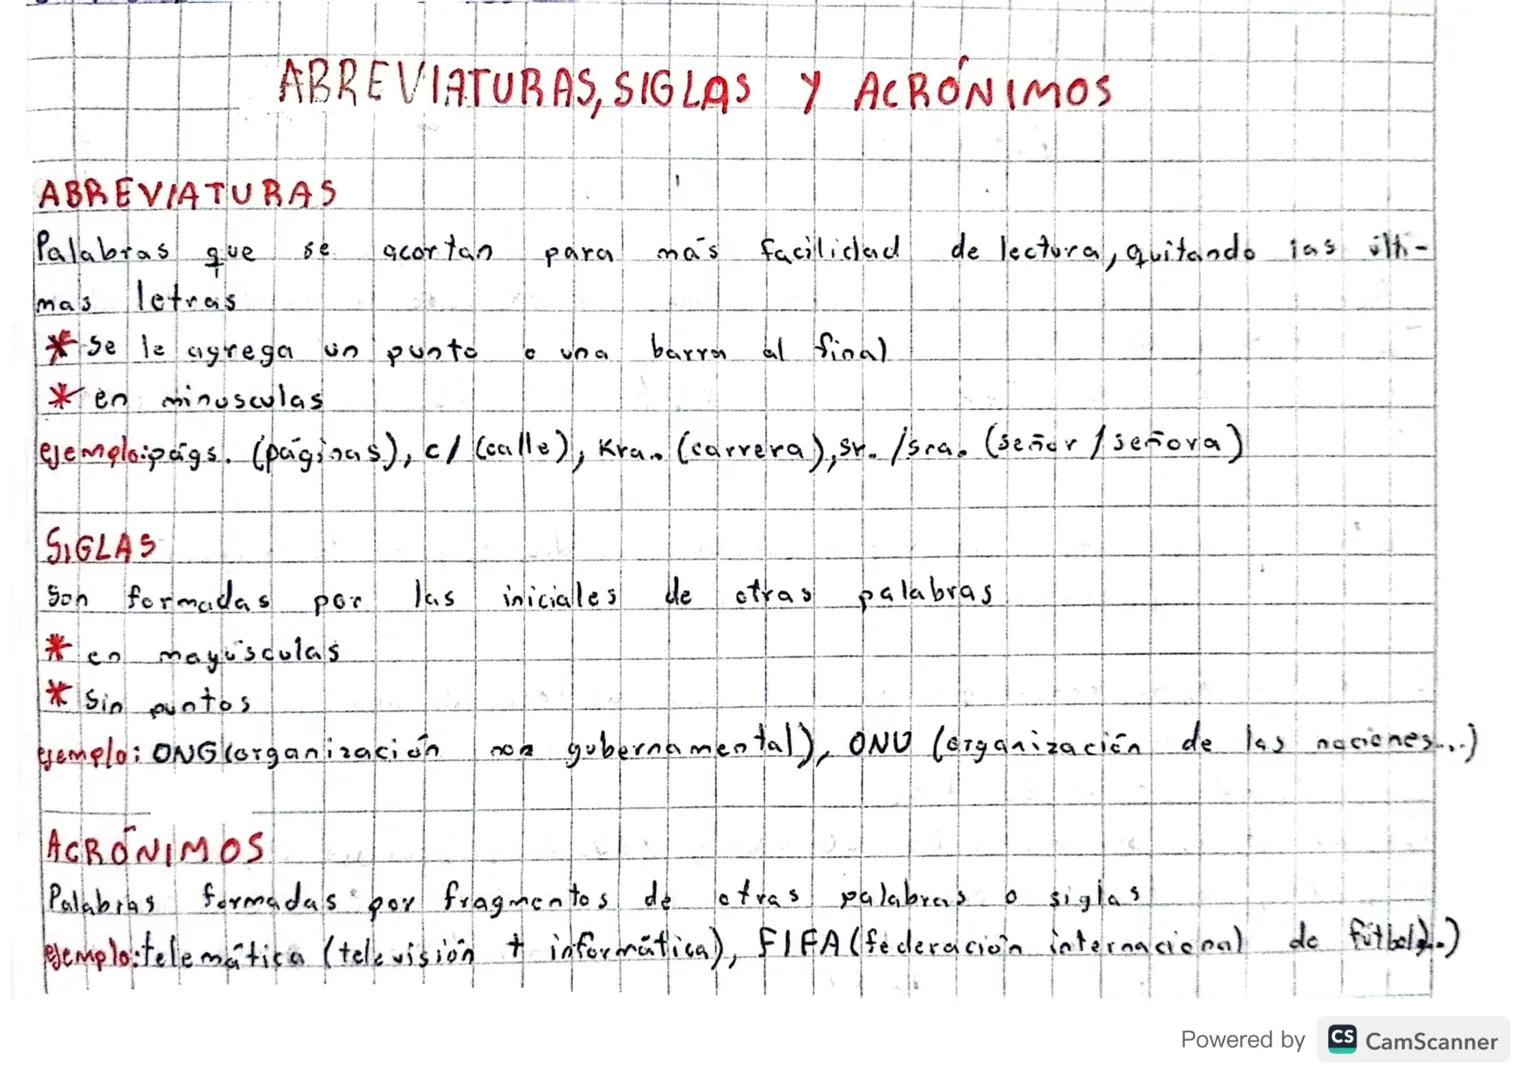 ABREVIATURAS, SIGLAS Y ACRÓNIMOS
ABREVIATURAS
Palabras que se acortan para más facilidad de lectura, quitando las últi-
mas letras
* se le agrega un punto o una barra al final
* en minusculas
ejemplo: págs. (páginas), c/ (calle), Kra. (carrera), sr. /sra. (señor / señora)
SIGLAS
Son formadas por las iniciales de otras palabras
* en mayúsculas
* Sin puntos
ejemplo: ONG (organización non gubernamental), ONU (organización de las naciones...)
ACRÓNIMOS
Palabras formadas por fragmentos de otras palabras o siglas
ejemplo: telemática (televisión + informática), FIFA (federación internacional de fútbol..)
Powered by CS CamScanner